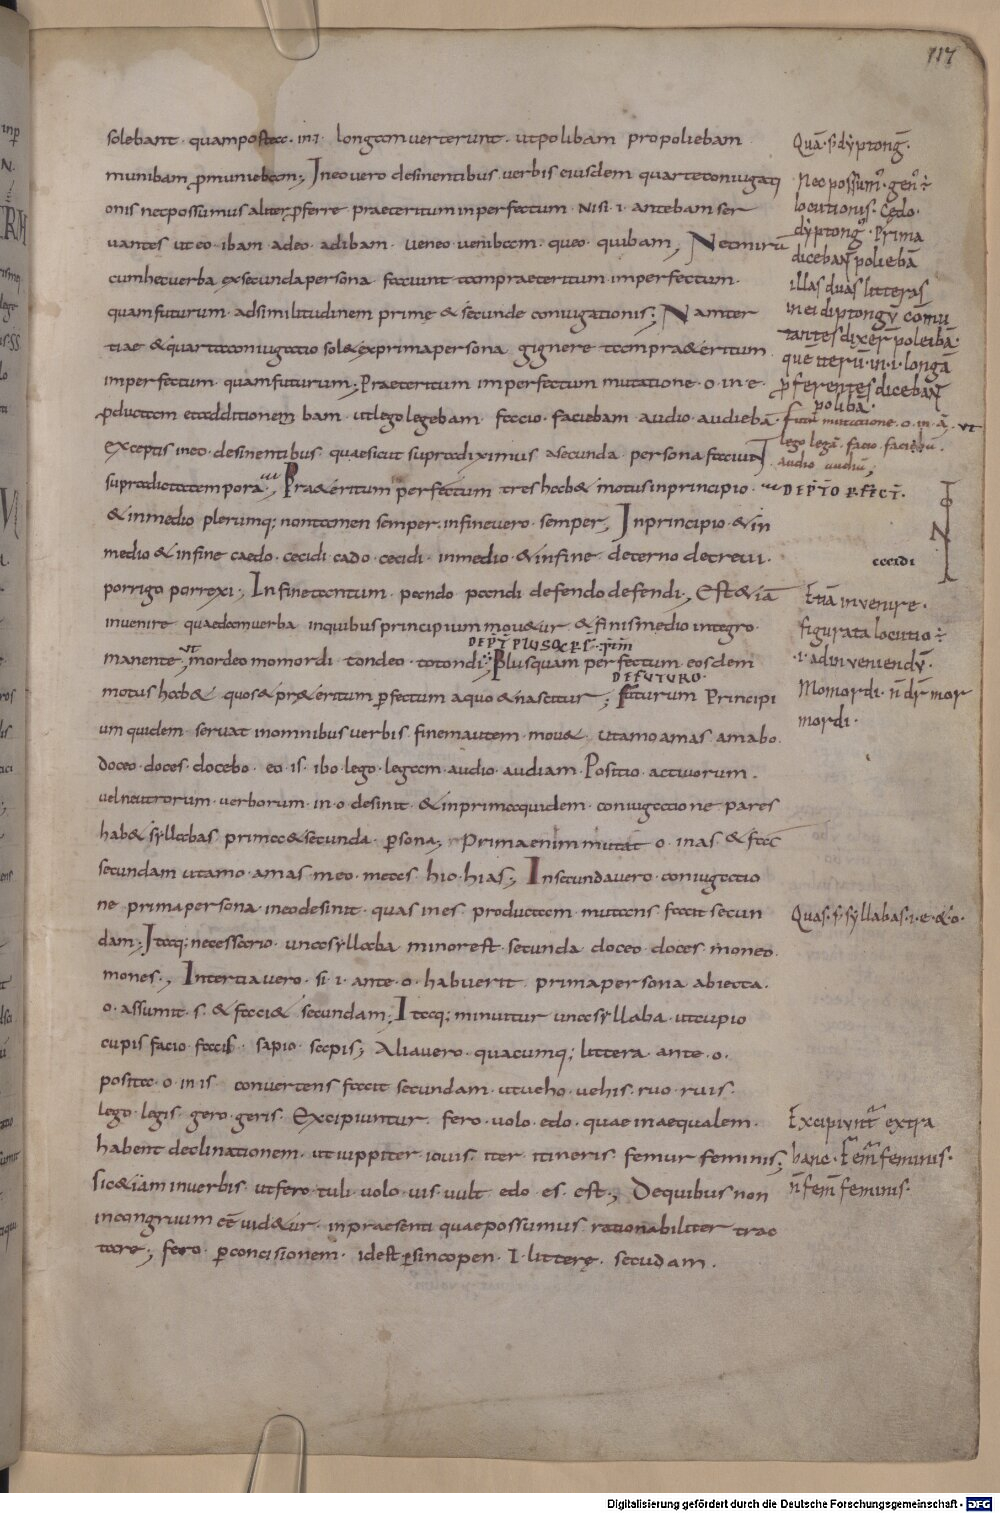 117
solebant · quam postea · in · i · longam verterunt · ut polibam pro poliebam
munibam p muniebam ; In eo vero desinentibus verbis eiusdem quarte coniugati
onis nec possumus aliter pferre praeteritum inperfectum · nisi · i · ante bam ser
vantes ut eo · ibam adeo · adibam · veneo venibam · queo · quibam ; Nec mirū
cum hec verba ex secunda persona faciunt tam praeteritum imperfectum ·
quam futurum · ad similitudinem prime & secunde coniugationis ; Nam ter
tiae & quarta coniugatio sol& ex prima persona gignere tam pra&eritum
imperfectum · quam futurum ; Praeteritum imperfectum mutatione · o · in · e ·
pductam et additionem bam · ut lego legebam · facio · faciebam audio · audiebā ·
exceptis in eo · desinentibus quae sicut supra diximus a secunda persona faciunt
supradicta tempora ; Pra&eritum perfectum tres hab& motus in principio ·
& in medio plerumq; non tamen semper · in fine vero · semper ; In principio & in
medio & in fine caedo · cecidi cado · cecidi · in medio & in fine decerno decrevi ·
porrigo porrexi ; In fine tantum · pando pandi defendo defendi ; Est & iā
invenire quaedam verba in quibus principium mou&ur & finis medio integro ·
DE P̄T̄ PLUSQ P̄F̄
manente ut mordeo momordi · tondeo · totondi ; Plusquam perfectum eosdem
DE FUTURO ·
motus hab& · quos & pr&eritum pfectum a quo & nascitur ; futurum Principi
um quidem servat in omnibus verbis finem autem mou& · ut amo amas amabo ·
doceo · doces · docebo · eo · is · ibo · lego · legam · audio · audiam · Positio activorum ·
vel neutrorum · verborum · in · o · desinit · & in prima quidem · coniugatione pares
hab& syllabas prima & secunda · psona ; Prima enim mutat o · in as · & fac
secundam ut amo · amas · meo · meas · hio · hias ; In secunda vero · coniugatio
ne prima persona · in eo desinit · quas in es productam mutans facit secun
dam ; Itaq; necessario · una syllaba minor est · secunda doceo · doces moneo ·
mones · ; In tertia vero · si · i · ante · o · habuerit prima persona abiecta ·
o · assumit · s · & faci& secundam ; Itaq; minuitur una syllaba · ut cupio
cupis facio · facis · sapio · sapis ; Alia vero · quacumq; littera ante · o ·
posita · o · in is convertens facit secundam · ut veho · vehis · ruo · ruis ·
lego · legis · gero · geris · Excipiuntur · fero · volo · edo · quae inaequalem ·
habent declinationem · ut iuppiter · iovis · iter itineris · femur feminis ;
sic & iam in verbis ut fero · tuli · volo · vis · vult · edo · es · est · ; De quibus non
incongruum cē vid&ur · in praesenti quae possumus rationabiliter trac
tare ; fero · p concisionem · id est p sincopen · I · litterę · secudam ·
Quā · s̄ dyptong̅ ·
Nec possum⁹ · gen⁹ ·
locutionis · Cedo ·
dyptong⁹ · Prima
dicebant poliebā
illas duas litteras
in ei diptongū comu
tantes dixer̄ poleibā ·
que iterū · in · i · longā
pferentes diceban̄
polibā ·
futur̄ mutatione · o · in · ā · ut
lego legā · facio · faciā ·
audio audiā ;
DE P̄T̄O P̄F̄C̄T̄ ·
IN
cecidi
Etiā invenire ·
figurata locutio ·
· i · ad inveniendū ·
Momordi · n̄ dr̄ mor
mordi ·
Quas · s̄ syllabas · i · e · & · o ·
Excipiunt̄ extra
hanc · Fem̄ feminis ·
n̄ fem̄ feminis ·
Digitalisierung gefördert durch die Deutsche Forschungsgemeinschaft - DFG